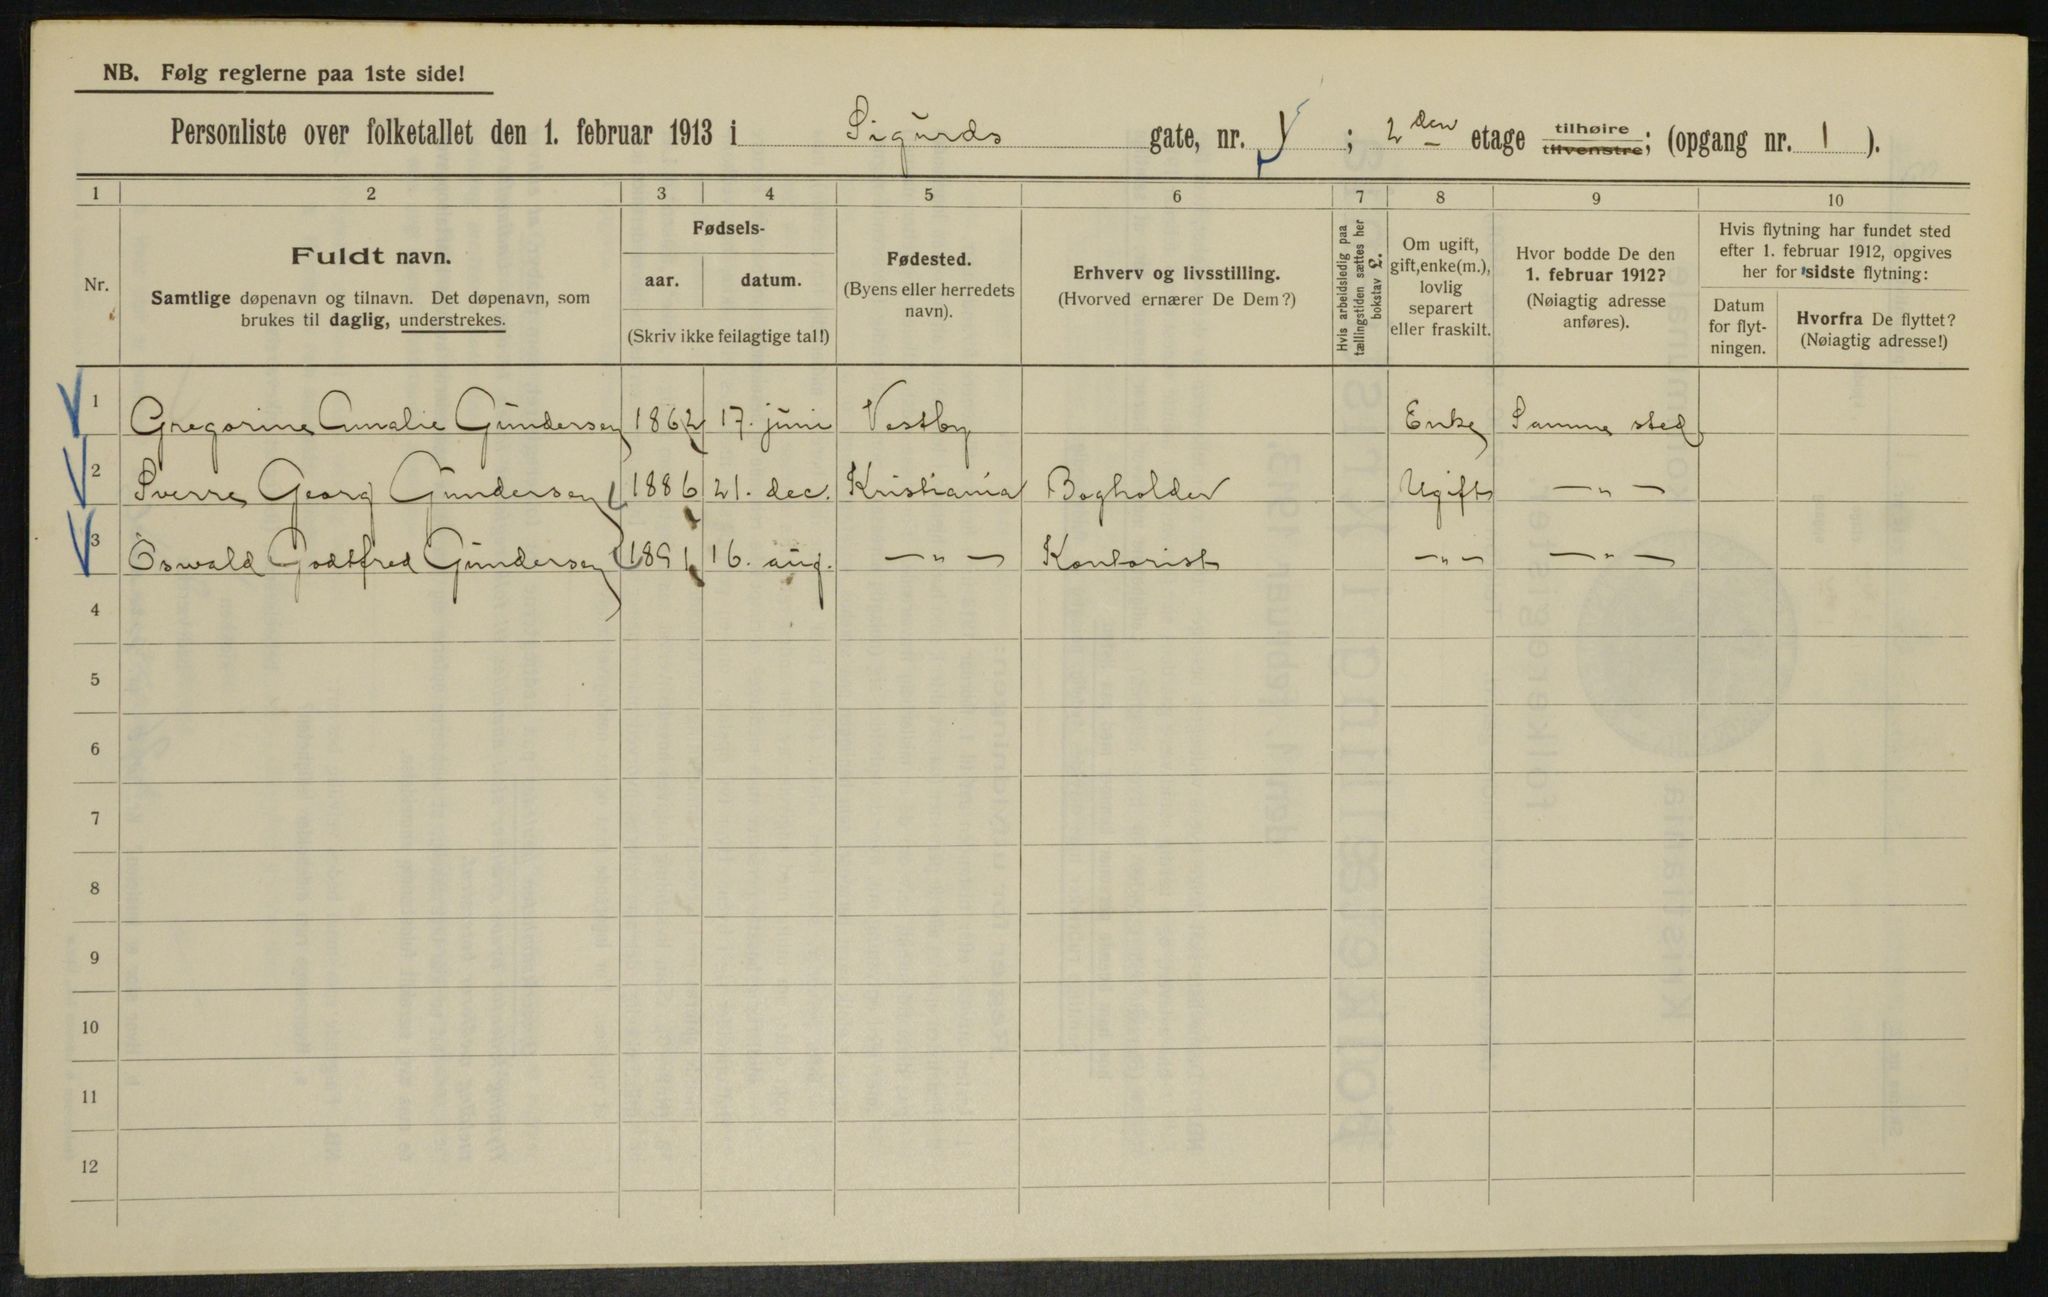 NB. Følg reglerne paa 1ste side!
Personliste over folketallet den 1. februar 1913 i Sigurds gate, nr. ; 2den etage tilhøire tilvenstre; (opgang nr. 1 ).
1 2 3 4 5 6 7 8 9 10
Nr.
Fuldt navn.
Samtlige døpenavn og tilnavn. Det døpenavn, som
brukes til daglig, understrekes.
Fødsels-
aar. datum.
(Skriv ikke feilagtige tal!)
Fødested.
(Byens eller herredets
navn).
Erhverv og livsstilling.
(Hvorved ernærer De Dem?)
Hvis arbeidsledig paa
tællingstiden sættes her
bokstav L.
Om ugift,
gift, enke(m.),
lovlig
separert
eller fraskilt.
Hvor bodde De den
1. februar 1912?
(Nøiagtig adresse
anføres).
Hvis flytning har fundet sted
efter 1. februar 1912, opgives
her for sidste flytning:
Datum
for flyt-
ningen.
Hvorfra De flyttet?
(Nøiagtig adresse!)
1 Gregorine Amalie Gundersen 1862 17. juni Vestby Enke Samme sted
2 Sverre Georg Gundersen 1886 21. dec. Kristiania Bogholder Ugift — " —
3 Oswald Godtfred Gundersen 1891 16. aug. — " — Kontorist — " — — " —
4
5
6
7
8
9
10
11
12